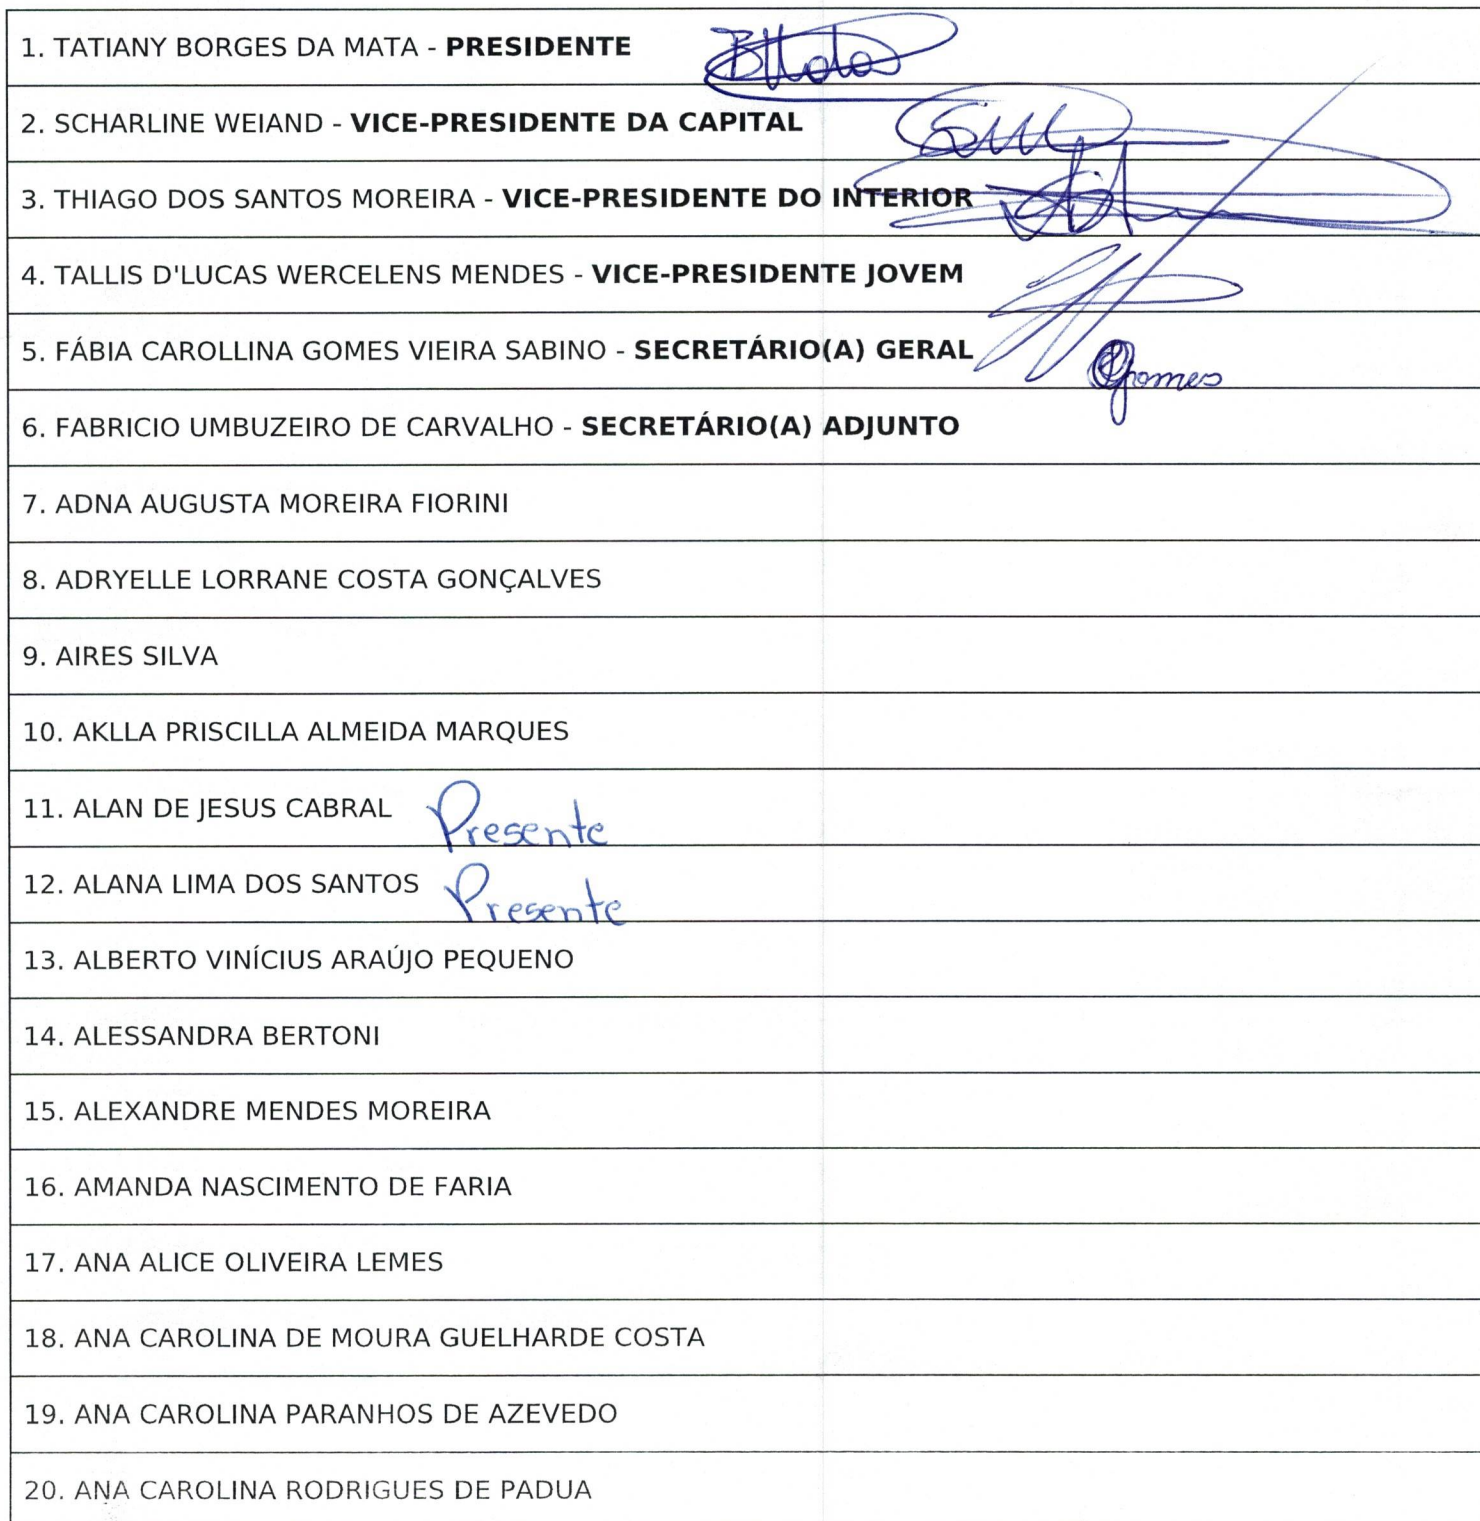 1. TATIANY BORGES DA MATA - PRESIDENTE
2. SCHARLINE WEIAND - VICE-PRESIDENTE DA CAPITAL
3. THIAGO DOS SANTOS MOREIRA - VICE-PRESIDENTE DO INTERIOR
4. TALLIS D'LUCAS WERCELENS MENDES - VICE-PRESIDENTE JOVEM
5. FÁBIA CAROLLINA GOMES VIEIRA SABINO - SECRETÁRIO(A) GERAL Gomes
6. FABRICIO UMBUZEIRO DE CARVALHO - SECRETÁRIO(A) ADJUNTO
7. ADNA AUGUSTA MOREIRA FIORINI
8. ADRYELLE LORRANE COSTA GONÇALVES
9. AIRES SILVA
10. AKLLA PRISCILLA ALMEIDA MARQUES
11. ALAN DE JESUS CABRAL Presente
12. ALANA LIMA DOS SANTOS Presente
13. ALBERTO VINÍCIUS ARAÚJO PEQUENO
14. ALESSANDRA BERTONI
15. ALEXANDRE MENDES MOREIRA
16. AMANDA NASCIMENTO DE FARIA
17. ANA ALICE OLIVEIRA LEMES
18. ANA CAROLINA DE MOURA GUELHARDE COSTA
19. ANA CAROLINA PARANHOS DE AZEVEDO
20. ANA CAROLINA RODRIGUES DE PADUA